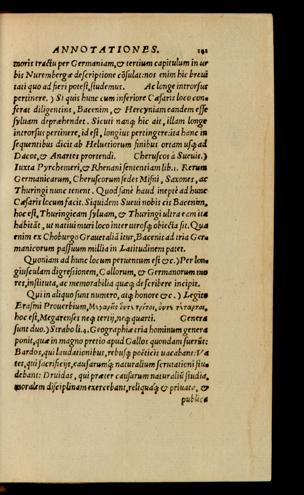 ANNOTATIONES. 191
moris tractu per Germaniam, & tertium capitulum in ur
bis Nurembergæ descriptione cõsulat: nos enim hic breui
tati quo ad fieri potest, studemus. Ac longe introrsus
pertinere.) Si quis hunc cum inferiore Cæsaris loco con-
ferat diligentius, Bacenim, & Hercyniam eandem esse
syluam depræhendet. Sicuti nanque hic ait, illam longe
introrsus pertinere, id est, longius pertingere: ita hanc in
sequentibus dicit ab Heluetiorum finibus ortam usque ad
Dacos, & Anartes protendi. Cheruscos à Sueuis.)
Iuxta Pyrchemeri, & Rhenani sententiam lib. 1. Rerum
Germanicarum, Cheruscorum sedes Misni, Saxones, ac
Thuringi nunc tenent. Quod sanè haud ineptè ad hunc
Cæsaris locum facit. Siquidem Sueui nobis cis Bacenim,
hoc est, Thuringicam syluam, & Thuringi ultra eam ita
habitãt, ut natiui muri loco inter utrosque obiecta sit. Qua
enim ex Choburgo Græuetaliã itur, Bacenis ad tria Ger
manicorum passuum millia in Latitudinem patet.
Quoniam ad hunc locum peruentum est &c.) Per lon-
giusculam digressionem, Gallorum, & Germanorum mo
res, instituta, ac memorabilia quæque describere incipit.
Qui in aliquo sunt numero, atque honore &c.) Legito
Erasmi Prouerbium, Μεγαρεῖς οὔτε τρίτοι, οὔτε τέταρτοι,
hoc est, Megarenses neque tertij, neque quarti. Genera
sunt duo.) Strabo li. 4. Geographiæ tria hominum genera
ponit, quæ in magno pretio apud Gallos quondam fuerũt:
Bardos, qui laudationibus, rebusque poëticis uacabant: Va
tes, qui sacrificijs, causarumque naturalium scrutationi stu
debant: Druidas, qui præter causarum naturaliũ studia,
moralem disciplinam exercebant, reliquaque & priuata, &
publica